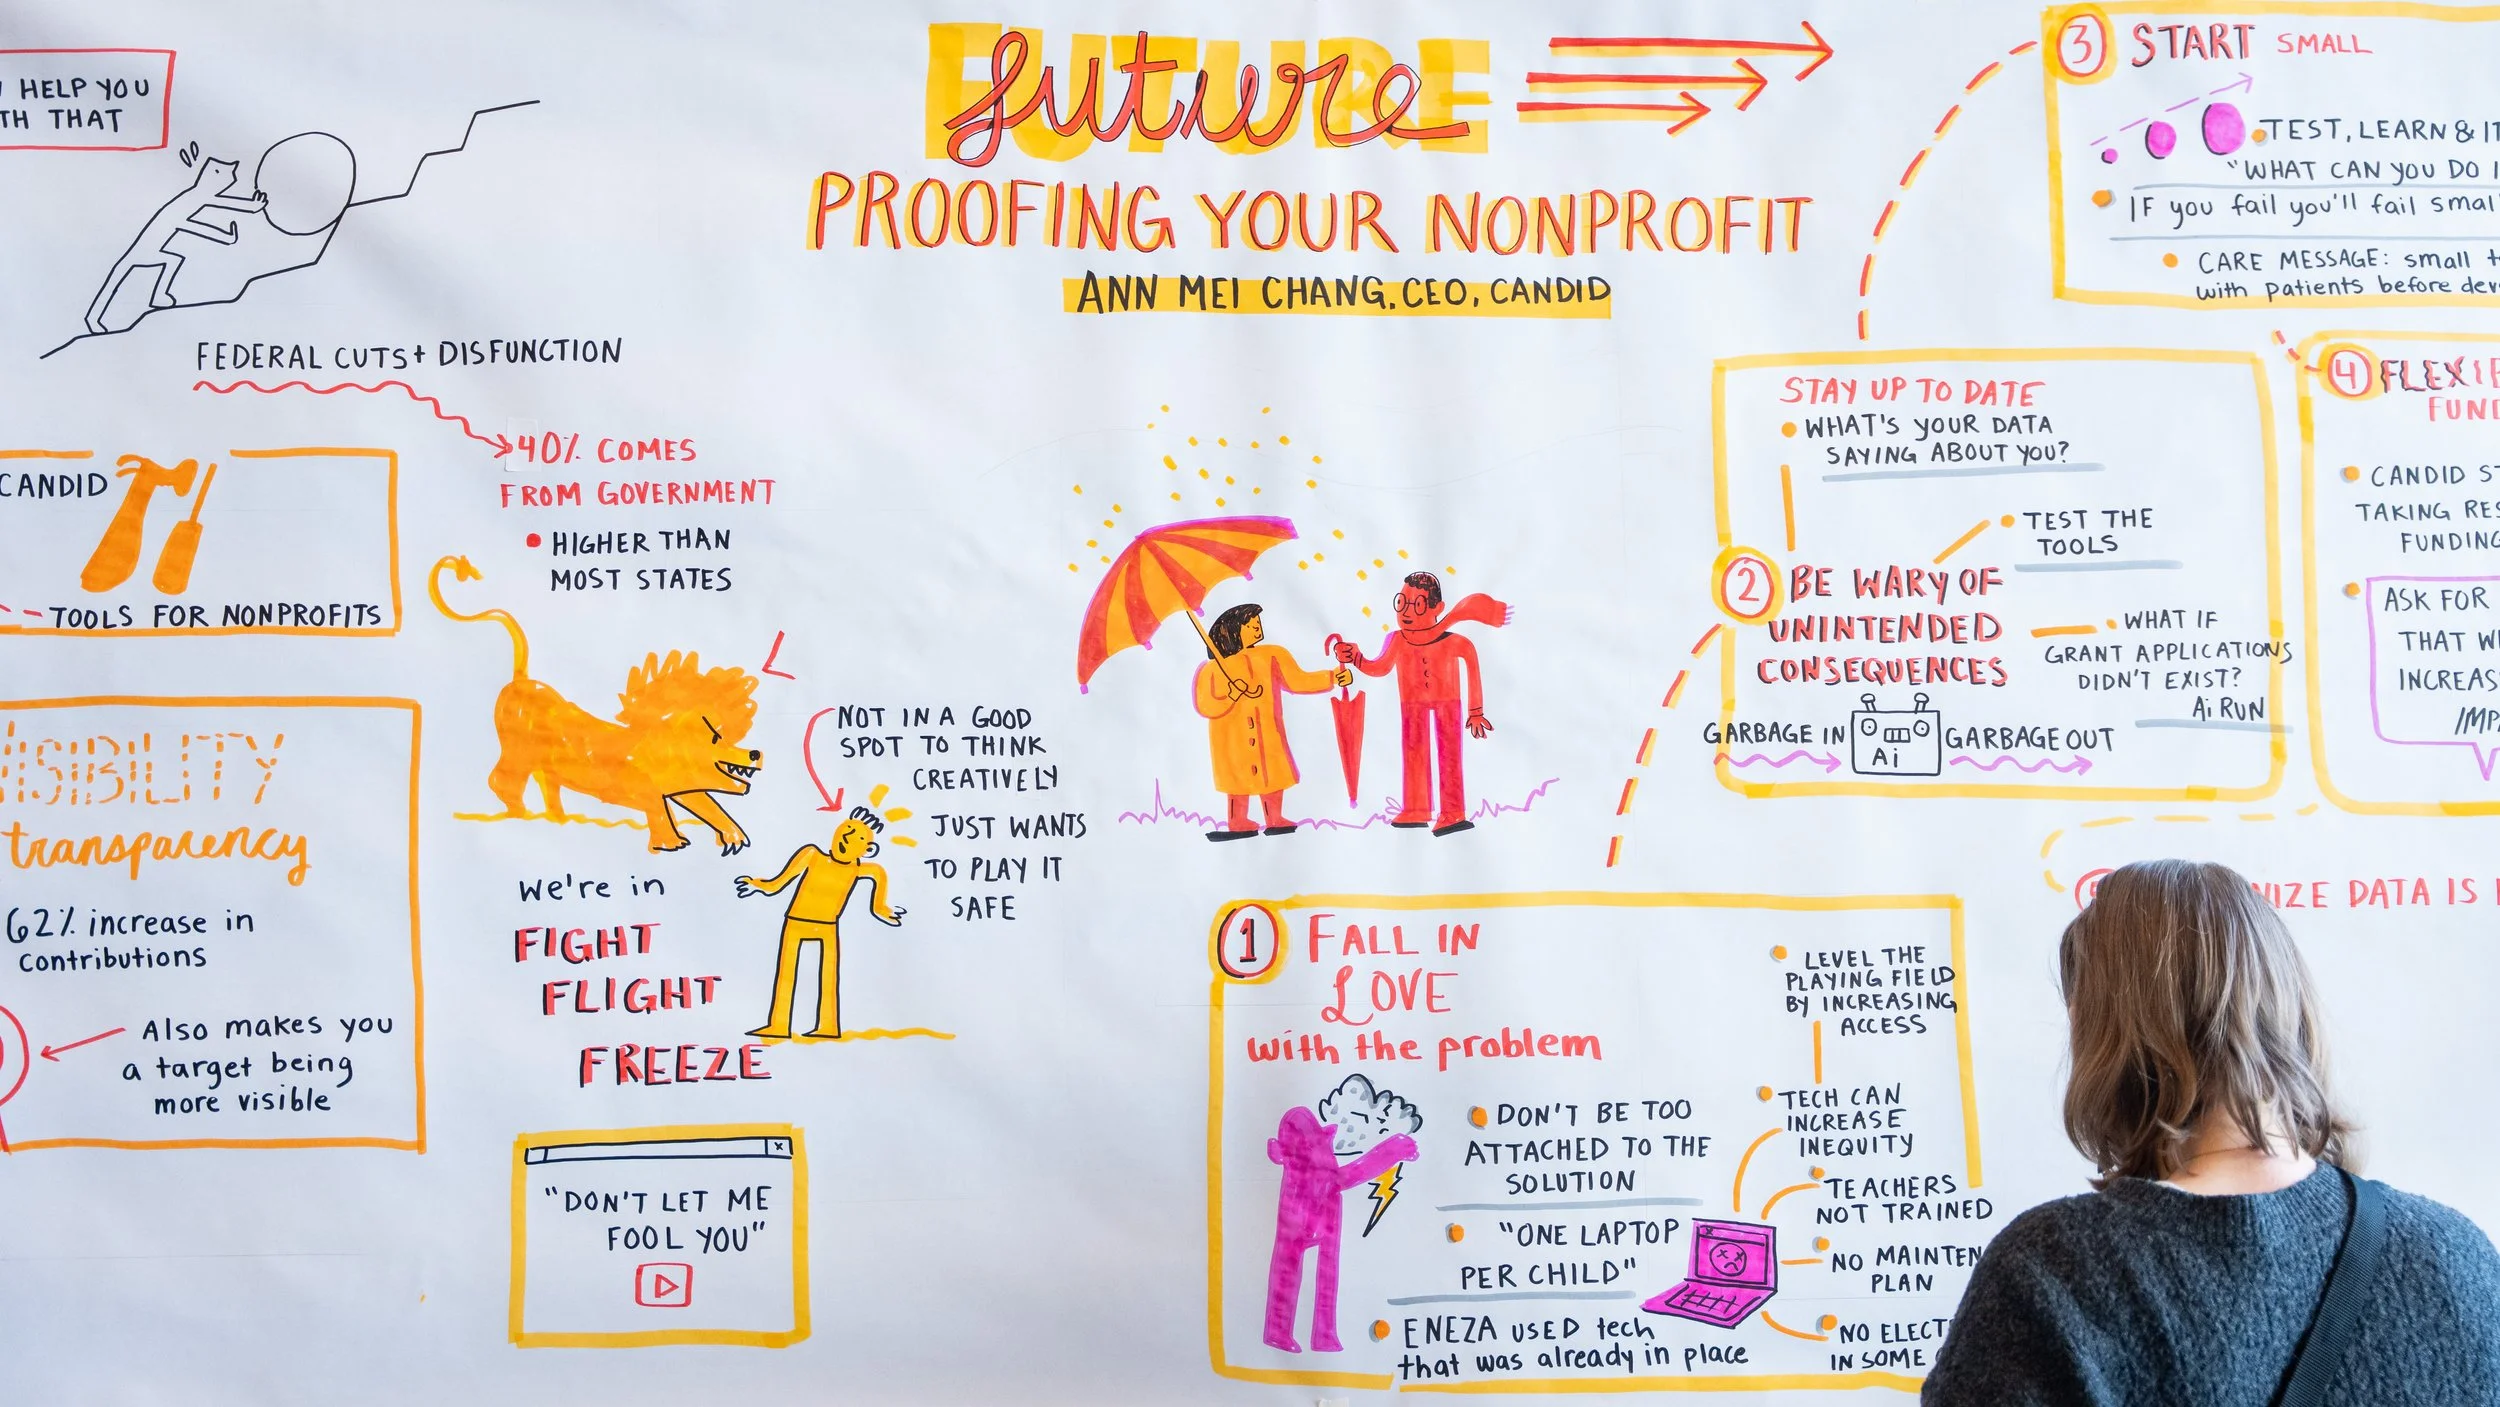 HELP YOU
THAT
FUTURE
future
PROOFING YOUR NONPROFIT
ANN MEI CHANG, CEO, CANDID
FEDERAL CUTS + DISFUNCTION
40% COMES
FROM GOVERNMENT
• HIGHER THAN
MOST STATES
CANDID
TOOLS FOR NONPROFITS
VISIBILITY
transparency
62% increase in
contributions
Also makes you
a target being
more visible
NOT IN A GOOD
SPOT TO THINK
CREATIVELY
JUST WANTS
TO PLAY IT
SAFE
we're in
FIGHT
FLIGHT
FREEZE
"DON'T LET ME
FOOL YOU"
1 FALL IN
LOVE
with the problem
• DON'T BE TOO
ATTACHED TO THE
SOLUTION
• "ONE LAPTOP
PER CHILD"
• ENEZA USED tech
that was already in place
• LEVEL THE
PLAYING FIELD
BY INCREASING
ACCESS
• TECH CAN
INCREASE
INEQUITY
• TEACHERS
NOT TRAINED
• NO MAINTEN
PLAN
• NO ELECT
IN SOME
2 BE WARY OF
UNINTENDED
CONSEQUENCES
STAY UP TO DATE
• WHAT'S YOUR DATA
SAYING ABOUT YOU?
• TEST THE
TOOLS
• WHAT IF
GRANT APPLICATIONS
DIDN'T EXIST?
Ai RUN
GARBAGE IN
Ai
GARBAGE OUT
3 START SMALL
• TEST, LEARN &
"WHAT CAN YOU DO
• IF you fail you'll fail small
• CARE MESSAGE: small
with patients before
4
FUND
• CANDID
TAKING
FUNDING
• ASK FOR
THAT
INCREAS
IMP
DATA IS